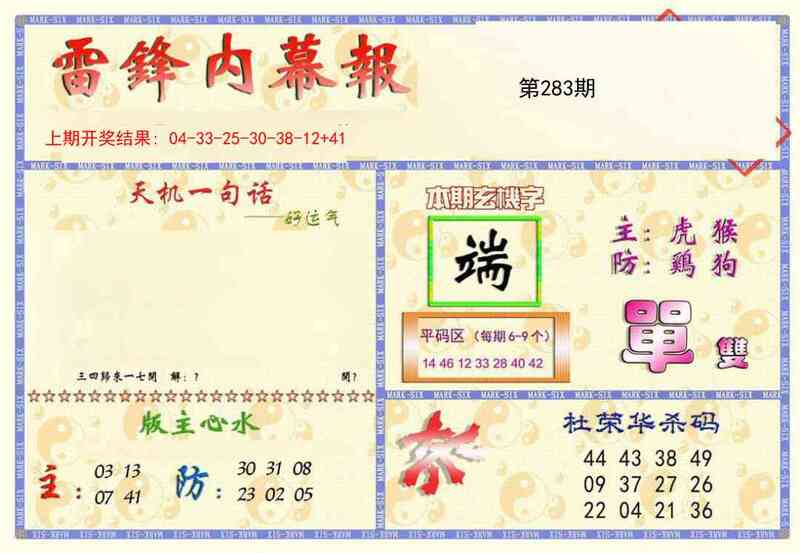 雷鋒内幕報
第283期
上期开奖结果：04-33-25-30-38-12+41
天机一句话
——好运气
三四歸來一七開 解：? 開?
本期玄機字
端
主：虎 猴
防：鷄 狗
平码区（每期6-9个）
14 46 12 33 28 40 42
單 雙
版主心水
主： 03 13
07 41
防： 30 31 08
23 02 05
杜荣华杀码
44 43 38 49
09 37 27 26
22 04 21 36
MARK-SIX